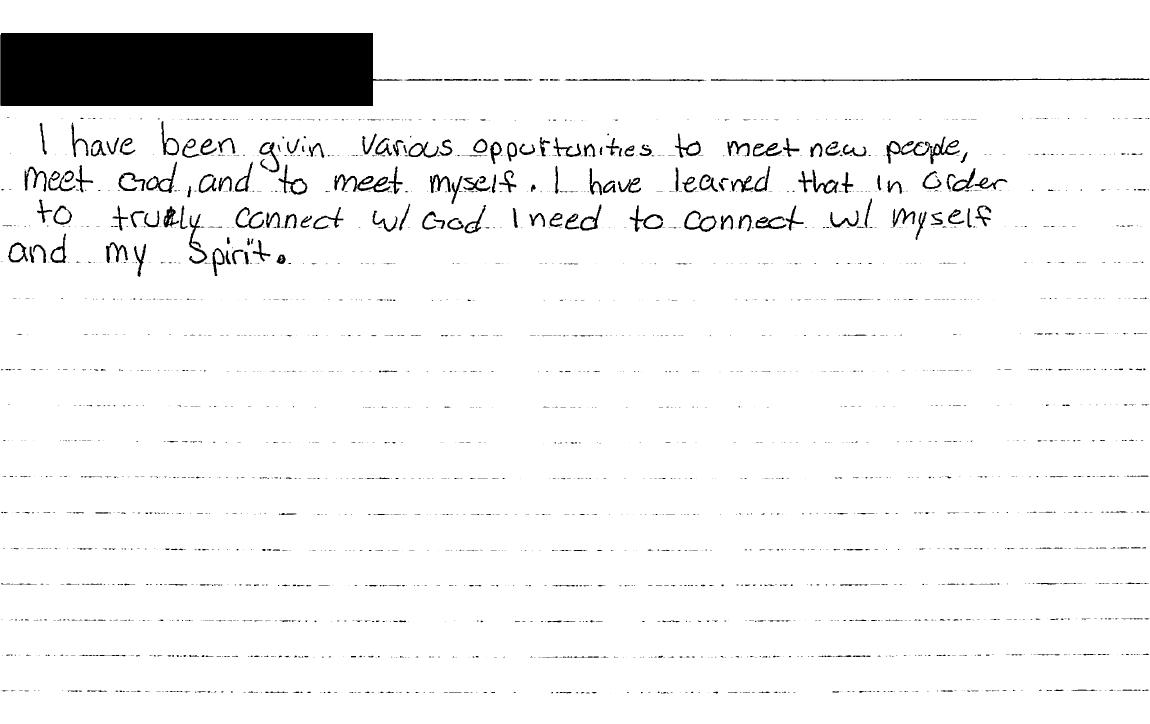 I have been givin various oppurtunities to meet new people,
meet God, and to meet myself. I have learned that in order
to truely connect w/ God I need to connect w/ myself
and my spirit.